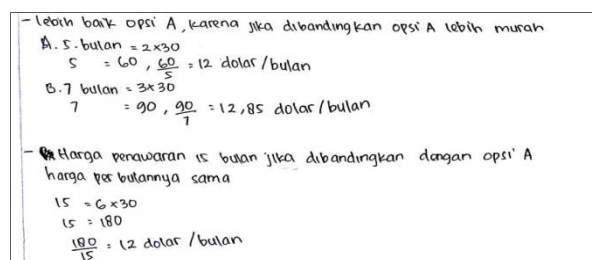 - lebih baik opsi A, karena jika dibandingkan opsi A lebih murah
A. 5 bulan = 2x30
5 = 60, 60/5 = 12 dolar/bulan
B. 7 bulan = 3x30
7 = 90, 90/7 = 12,85 dolar/bulan
- Harga penawaran 15 bulan jika dibandingkan dengan opsi A
harga per bulannya sama
15 = 6x30
15 = 180
180/15 = 12 dolar/bulan